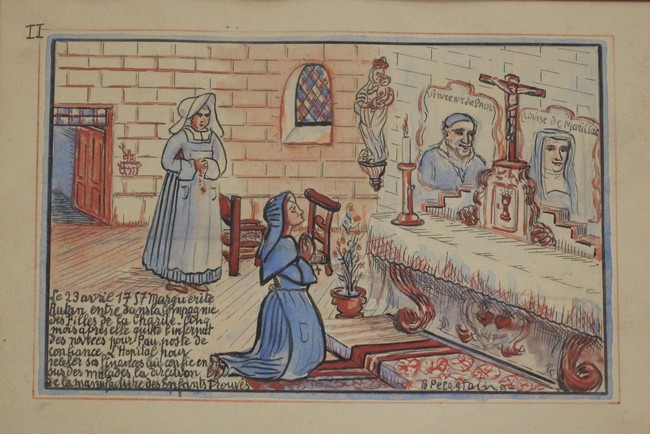 II
Vincent de PAUL
Louise de Marillac
Le 23 avril 1757 Marguerite
Rutan entre dans la Compagnie
des Filles de la Charité. Cinq
mois après elle quitte l'internat
des postées pour Pau, poste de
confiance. L'Hopital pour
relever ses finances lui confie en
sus des malades la direction
de la manufacture des Enfants Trouvés